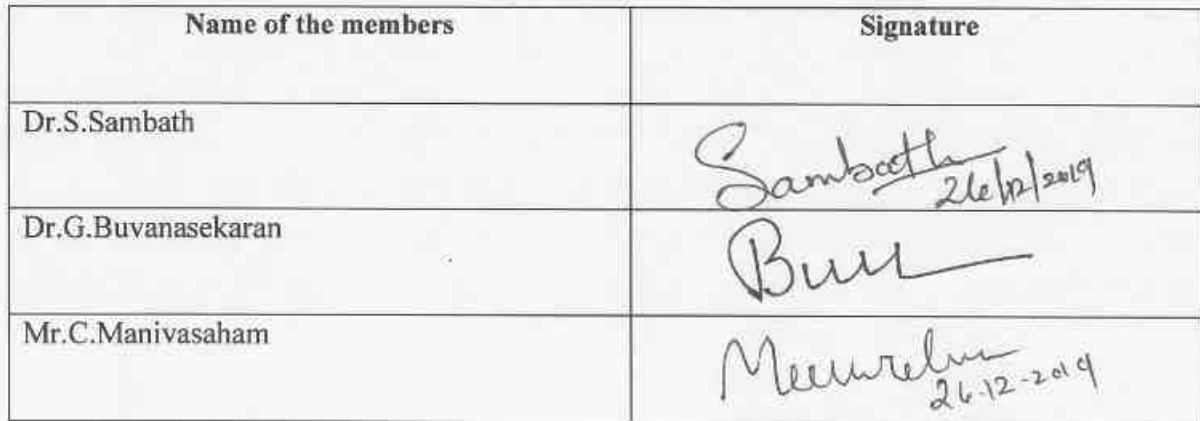 Name of the members Signature
Dr.S.Sambath
Sambath
26/12/2019
Dr.G.Buvanasekaran
Mr.C.Manivasaham
26.12-2019